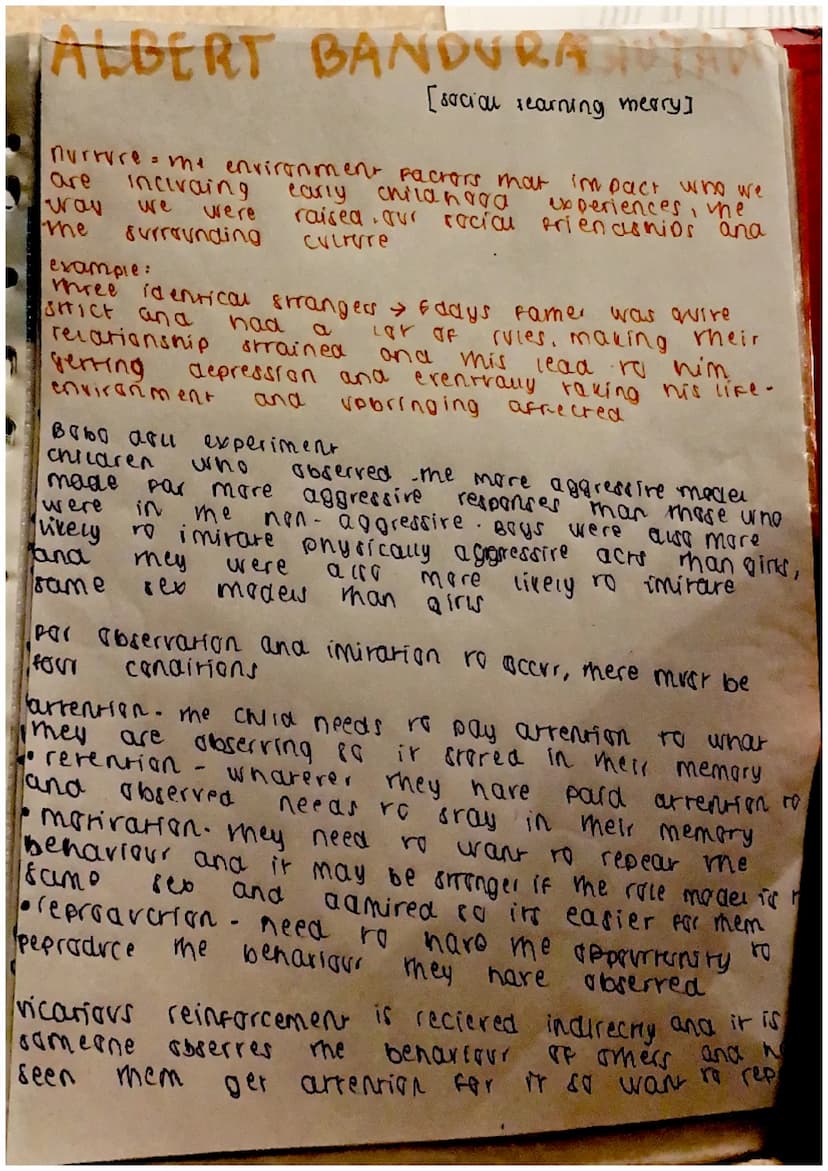 ALBERT BANDURA
[social learning theory]
nurture = the environment factors that impact who we
are including early childhood experiences, the
way we were raised, our social friendships and
the surrounding culture
example:
three identical strangers → Eddys father was quite
strict and had a lot of rules, making their
relationship strained and this lead to him
getting depression and eventually taking his life -
environment and upbringing affected
Bobo doll experiment
children who observed the more aggressive model
made far more aggressive responses than those who
were in the non-aggressive. Boys were also more
likely to imitate physically aggressive acts than girls,
and they were also more likely to imitate
same sex models than girls
for observation and imitation to occur, there must be
four conditions
attention - the child needs to pay attention to what
they are observing so it stored in their memory
• retention - whatever they have paid attention to
and observed needs to stay in their memory
• motivation - they need to want to repeat the
behaviour and it may be stronger if the role model is
same sex and admired so its easier for them
• reproduction - need to have the opportunity to
reproduce the behaviour they have observed
vicarious reinforcement is recieved indirectly and it is
someone observes the behaviour of others and
seen them get attention for it so want to rep